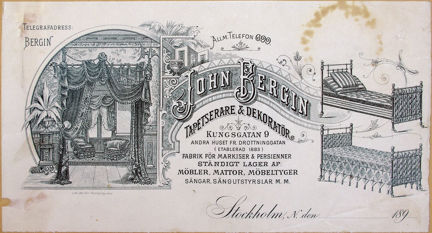 TELEGRAFADRESS:
"BERGIN"
ALLM. TELEFON
JOHN BERGIN
TAPETSERARE & DEKORATÖR
KUNGSGATAN 9
ANDRA HUSET FR. DROTTNINGGATAN
(ETABLERAD 1883)
FABRIK FÖR MARKISER & PERSIENNER
STÄNDIGT LAGER AF
MÖBLER, MATTOR, MÖBELTYGER
SÄNGAR, SÄNGUTSTYRSLAR M. M.
Stockholm, den 189